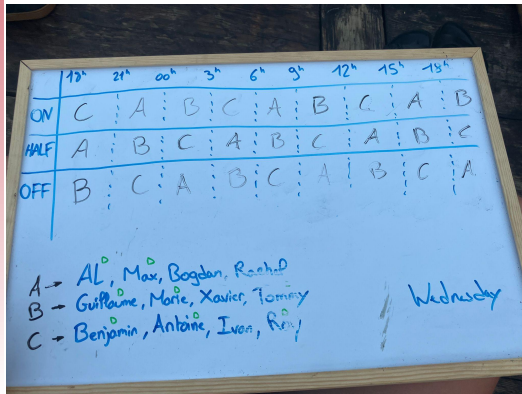 18h 21h 00h 3h 6h 9h 12h 15h 18h
ON C A B C A B C A B
HALF A B C A B C A B C
OFF B C A B C A B C A
A → AL, Max, Bogdan,
B → Guillaume, Marie, Xavier, Tommy
C → Benjamin, Antoine, Ivan,
Wednesday